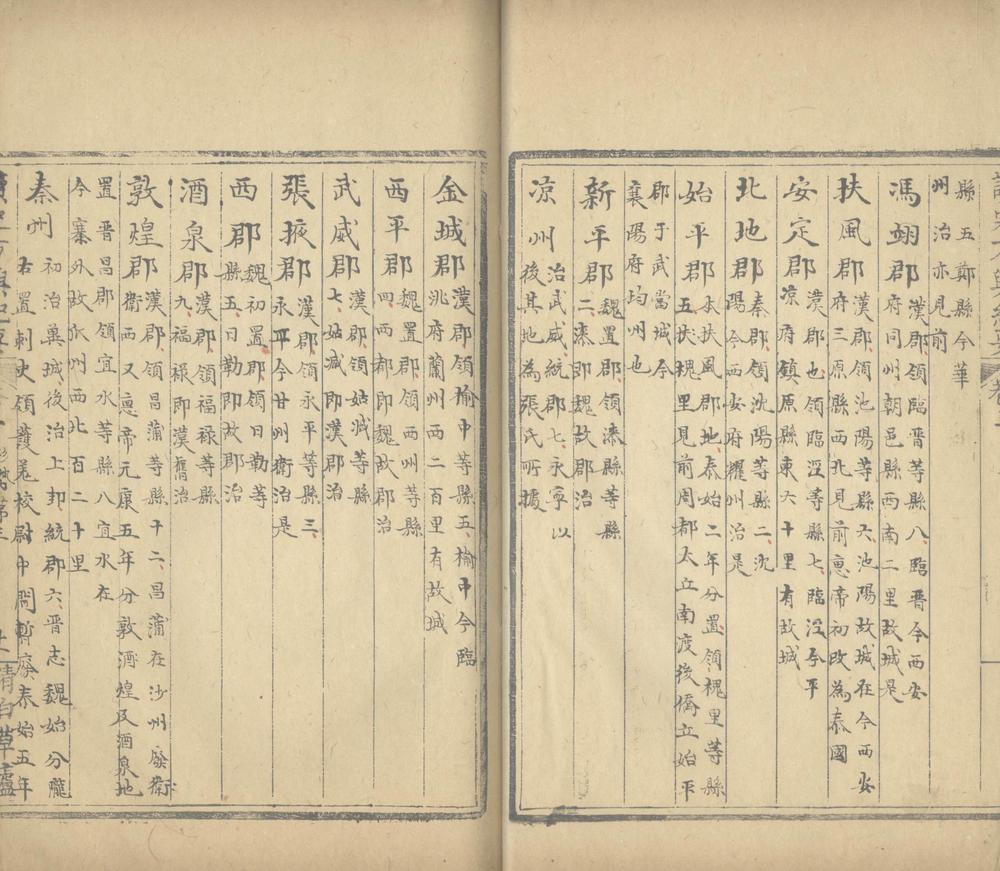 縣五鄭縣今華
州治亦見前
馮翊郡漢郡領臨晋等縣八臨晋今西安
府同州朝邑縣西南二里故城是
扶風郡漢郡領池陽等縣六池陽故城在今西安
府三原縣西北見前惠帝初改為秦國
安定郡漢郡也領臨涇等縣七臨涇今平
凉府鎮原縣東六十里有故城
北地郡秦郡領沈陽等縣二沈
陽今西安府耀州治是
始平郡本扶風郡地泰始二年分置領槐里等縣
五扶槐里見前周都太立南渡後僑立始平
郡于武當城今
襄陽府均州也
新平郡魏置郡領漆縣等縣
二漆即魏故郡治
凉州治武威統郡七永寧以
後其地為張氏所據
金城郡漢郡領榆中等縣五榆中今臨
洮府蘭州西二百里有故城
西平郡魏置郡領西州等縣
四西郡即魏故郡治
武威郡漢郡領姑臧等縣
七姑臧即漢郡治
張掖郡漢郡領永平等縣三
永平今甘州衛治是
西郡魏初置郡領日勒等
縣五日勒即故郡治
酒泉郡漢郡領福祿等縣
九福祿即漢舊治
敦煌郡漢郡領昌蒲等縣十二昌蒲在沙州廢衛
衛西又惠帝元康五年分敦煌及酒泉地
置晋昌郡領宜水等縣八宜水在
今塞外故瓜州西北百二十里
秦州初治兾城後治上邽統郡六晋志魏始分隴
右置刺史領護羌校尉中間暫廢泰始五年
清白草廬